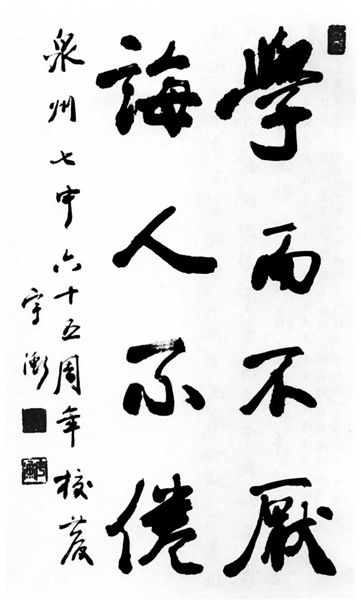 學而不厭
誨人不倦
泉州七中六十五周年校慶
宇衡